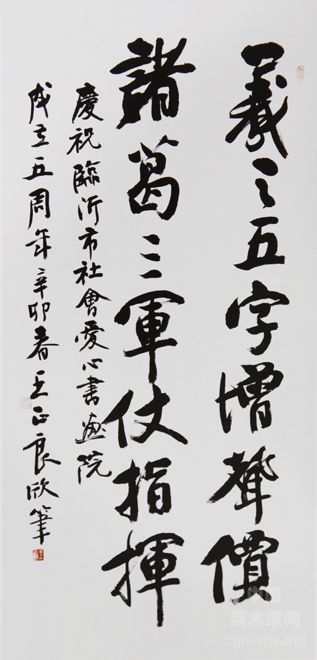 羲之五字增聲價
諸葛三軍仗指揮
慶祝臨沂市社會愛心書畫院
成立五周年辛卯春王正良欣筆
美术家网
zgmsjw.net